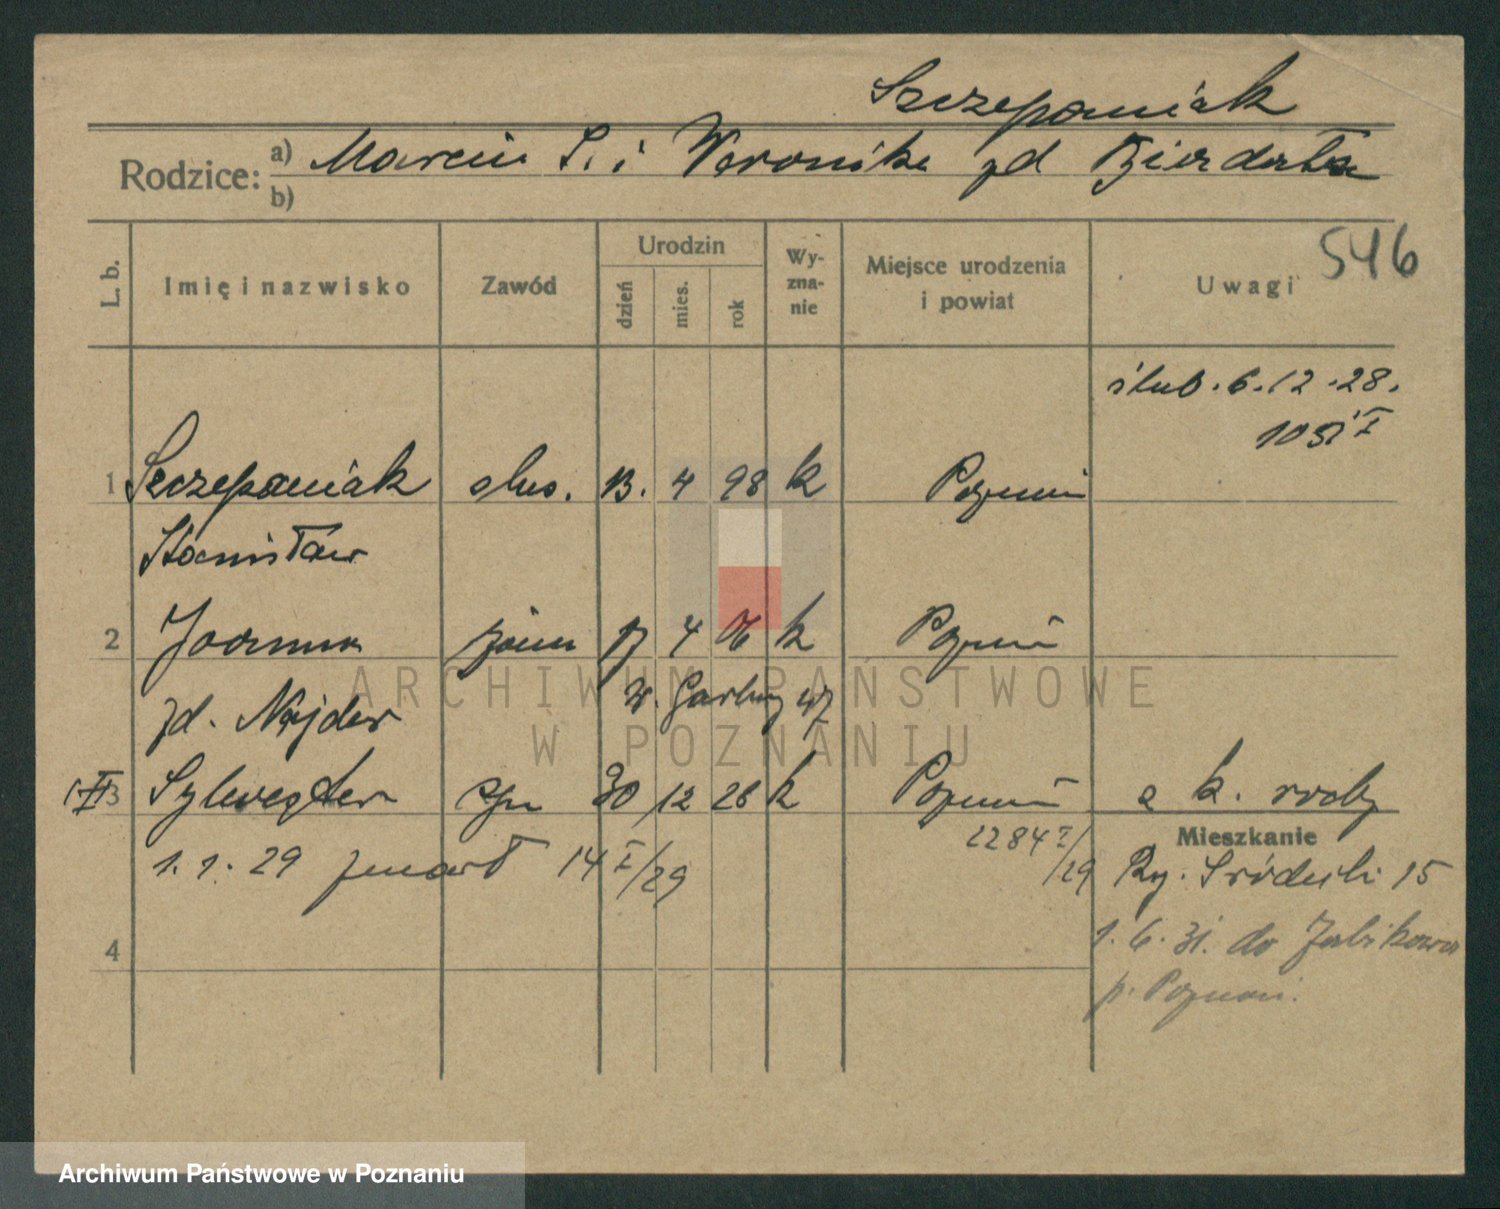 Szczepaniak
Rodzice: a) Marcin S. i Weronika zd
b)
L. b. Imię i nazwisko Zawód Urodzin dzień mies. rok Wy-zna-nie Miejsce urodzenia i powiat Uwagi 546
ślub. 6.12.28.
1 Szczepaniak ślus. 13. 4 98 k Poznań
Stanisław
2 Joanna żona 17 4 06 k Poznań
zd. Najder W. Garbary 47
3 Sylwester syn 30 12 28 k Poznań a k. rodz
1.1.29 zmarł 14 I/29 2284 I/29
Mieszkanie
Ry. Śródecki 15
4 1.6.31. do Żabikowa
p. Poznań.
ARCHIWUM PAŃSTWOWE
W POZNANIU
Archiwum Państwowe w Poznaniu